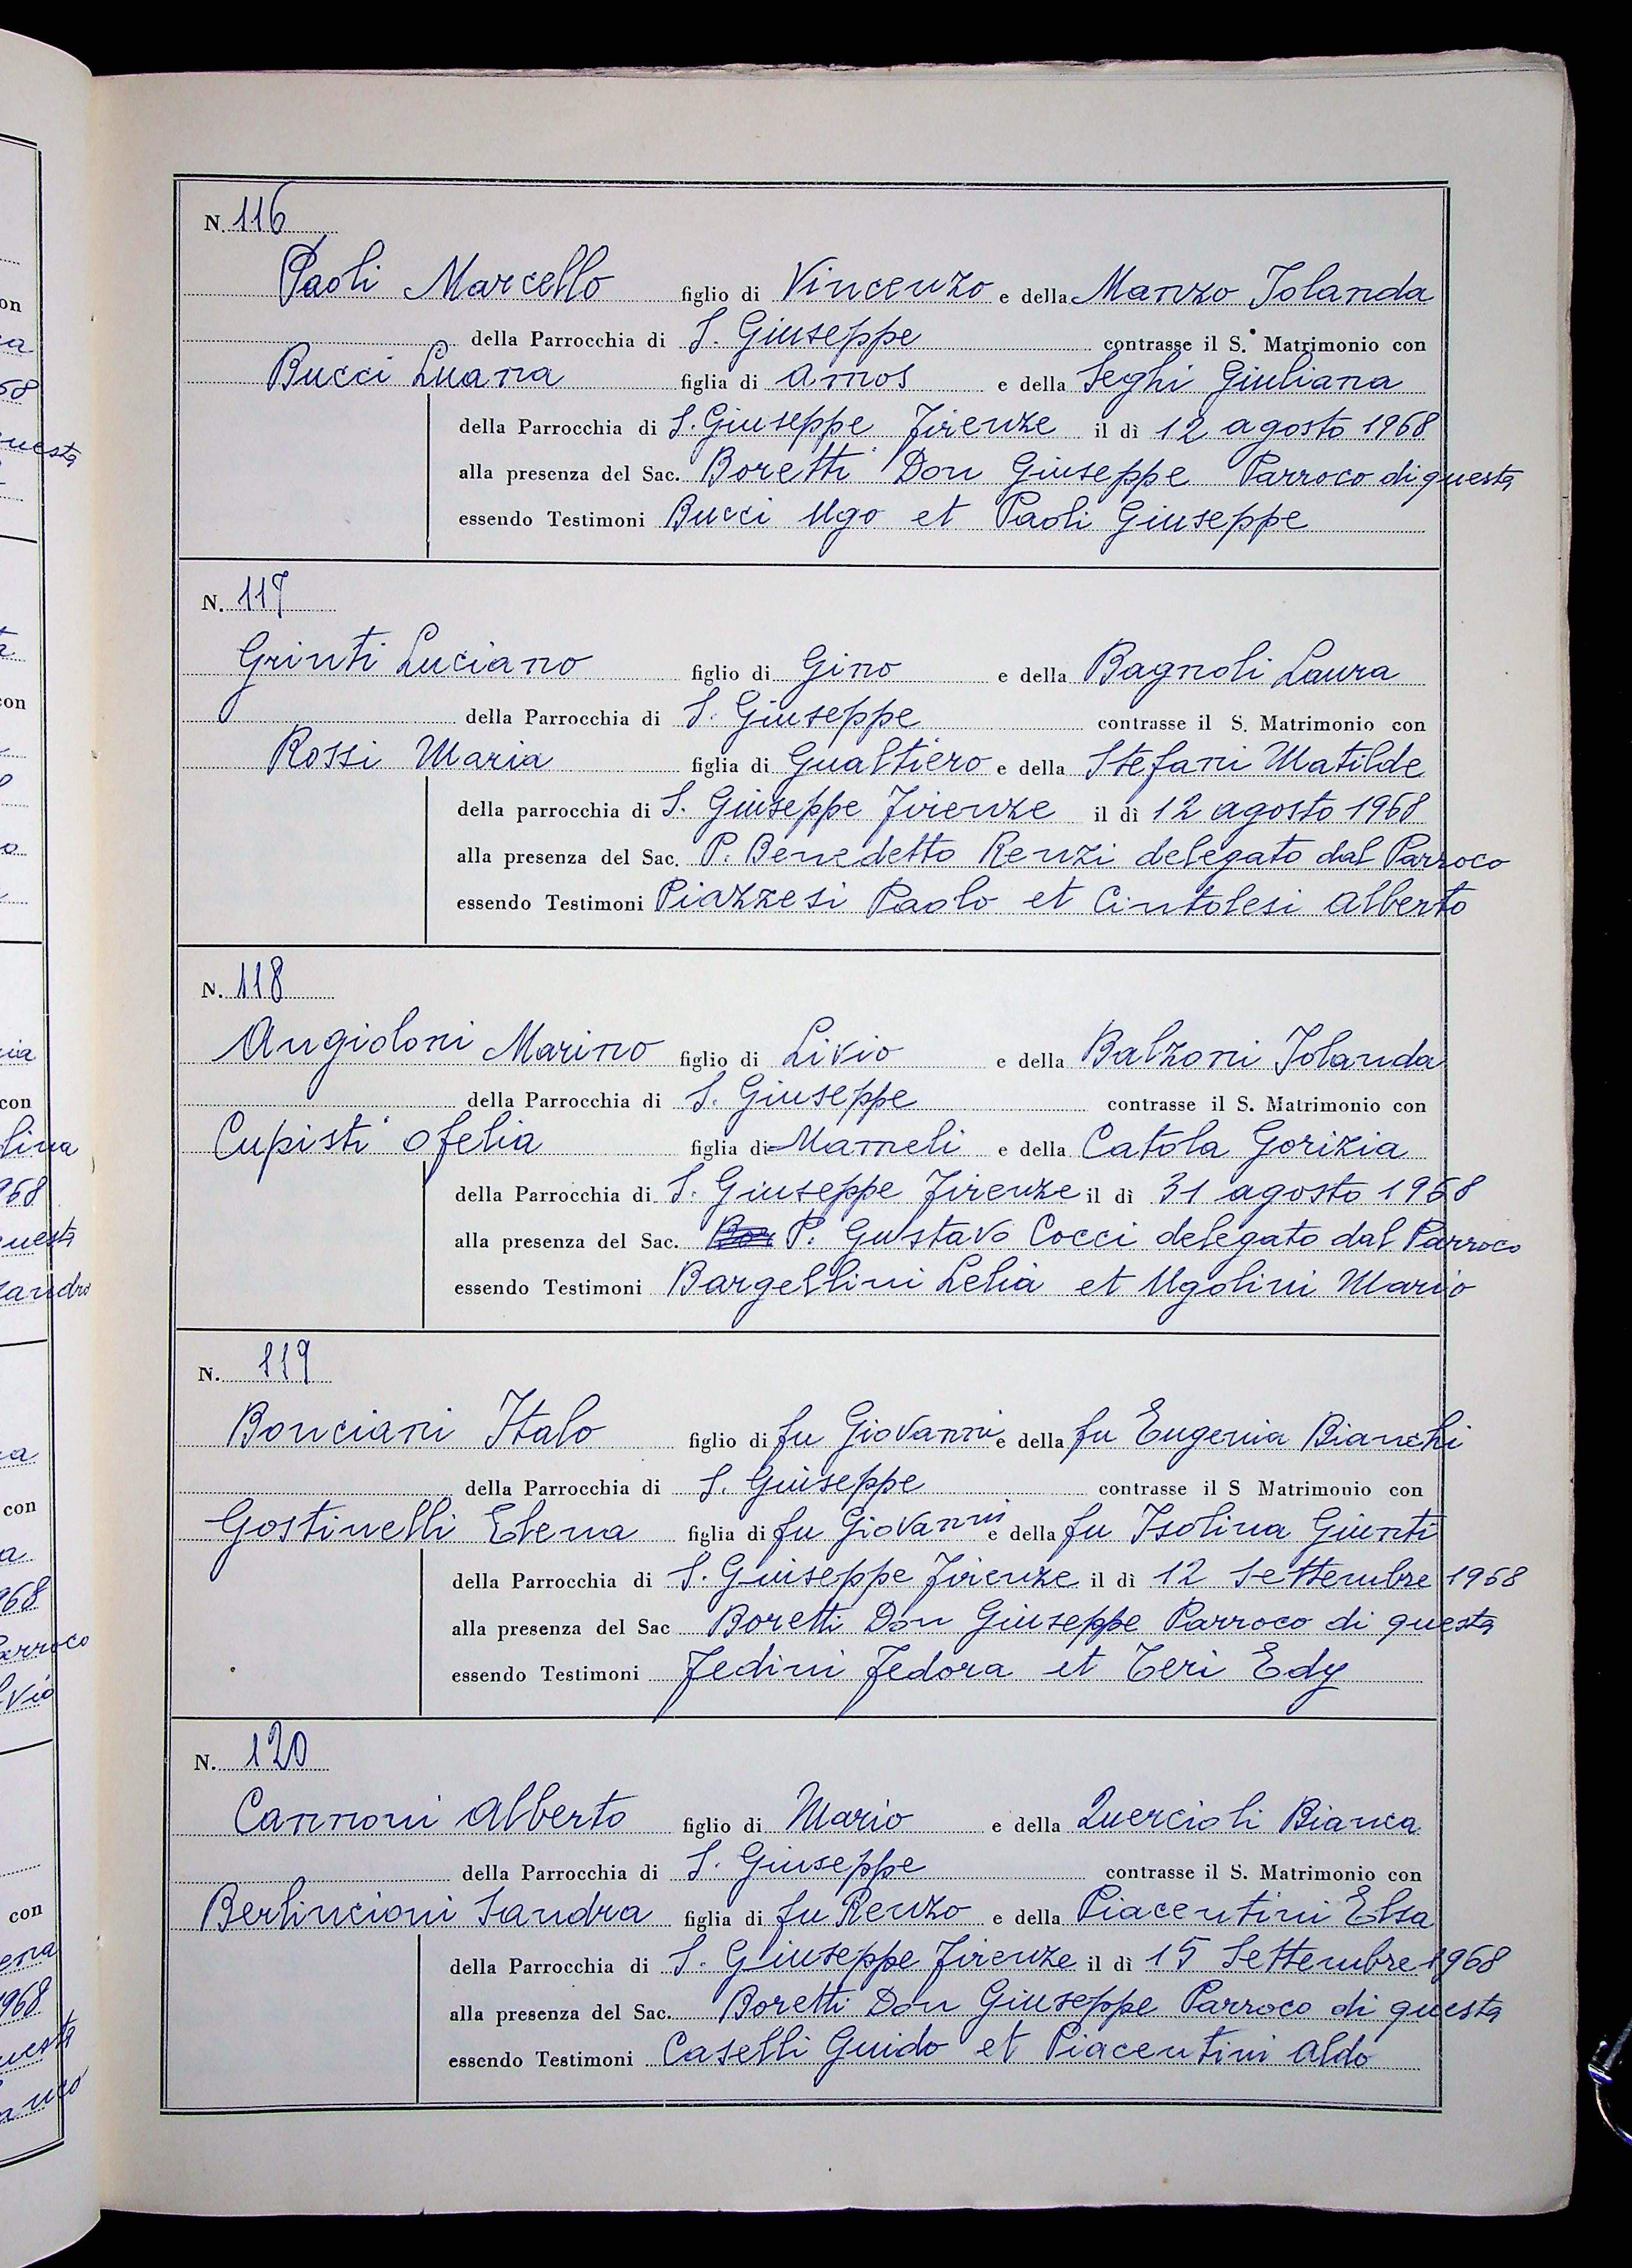 N. 116
Paoli Marcello figlio di Vincenzo e della Manzo Iolanda
della Parrocchia di S. Giuseppe contrasse il S. Matrimonio con
Bucci Luana figlia di Amos e della Seghi Giuliana
della Parrocchia di S. Giuseppe Firenze il dì 12 agosto 1968
alla presenza del Sac. Boretti Don Giuseppe Parroco di questa
essendo Testimoni Bucci Ugo et Paoli Giuseppe
N. 117
Grinti Luciano figlio di Gino e della Bagnoli Laura
della Parrocchia di S. Giuseppe contrasse il S. Matrimonio con
Rossi Maria figlia di Gualtiero e della Stefani Matilde
della parrocchia di S. Giuseppe Firenze il dì 12 agosto 1968
alla presenza del Sac. P. Benedetto Renzi delegato dal Parroco
essendo Testimoni Piazzesi Paolo et Cintolesi Alberto
N. 118
Angioloni Marino figlio di Livio e della Balzoni Iolanda
della Parrocchia di S. Giuseppe contrasse il S. Matrimonio con
Cupisti Ofelia figlia di Mameli e della Catola Gorizia
della Parrocchia di S. Giuseppe Firenze il dì 31 agosto 1968
alla presenza del Sac. P. Gustavo Cocci delegato dal Parroco
essendo Testimoni Bargellini Lelia et Ugolini Mario
N. 119
Bonciani Italo figlio di fu Giovanni e della fu Eugenia Bianchi
della Parrocchia di S. Giuseppe contrasse il S Matrimonio con
Gostinelli Elena figlia di fu Giovanni e della fu Isolina Giunti
della Parrocchia di S. Giuseppe Firenze il dì 12 Settembre 1968
alla presenza del Sac Boretti Don Giuseppe Parroco di questa
essendo Testimoni Fedini Fedora et Teri Edy
N. 120
Cannoni Alberto figlio di Mario e della Quercioli Bianca
della Parrocchia di S. Giuseppe contrasse il S. Matrimonio con
Berlincioni Sandra figlia di fu Renzo e della Piacentini Elsa
della Parrocchia di S. Giuseppe Firenze il dì 15 Settembre 1968
alla presenza del Sac. Boretti Don Giuseppe Parroco di questa
essendo Testimoni Caselli Guido et Piacentini Aldo